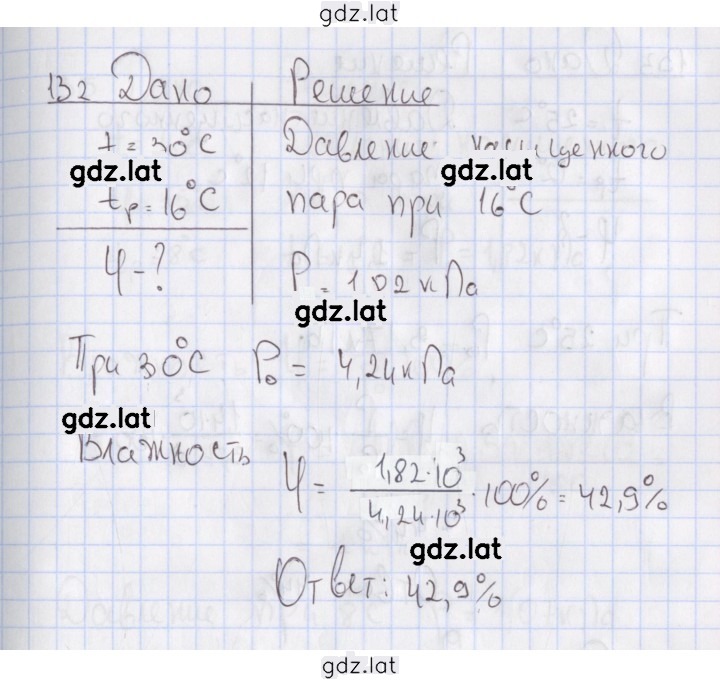 gdz.lat
132 Дано Решение
t = 30°C Давление насыщенного
gdz.lat gdz.lat
tр = 16°C пара при 16°C
φ - ? P = 1,82 кПа
gdz.lat
При 30°C P₀ = 4,24 кПа
gdz.lat
Влажность φ = 1,82·10³ / 4,24·10³ · 100% = 42,9%
gdz.lat
Ответ: 42,9%
gdz.lat